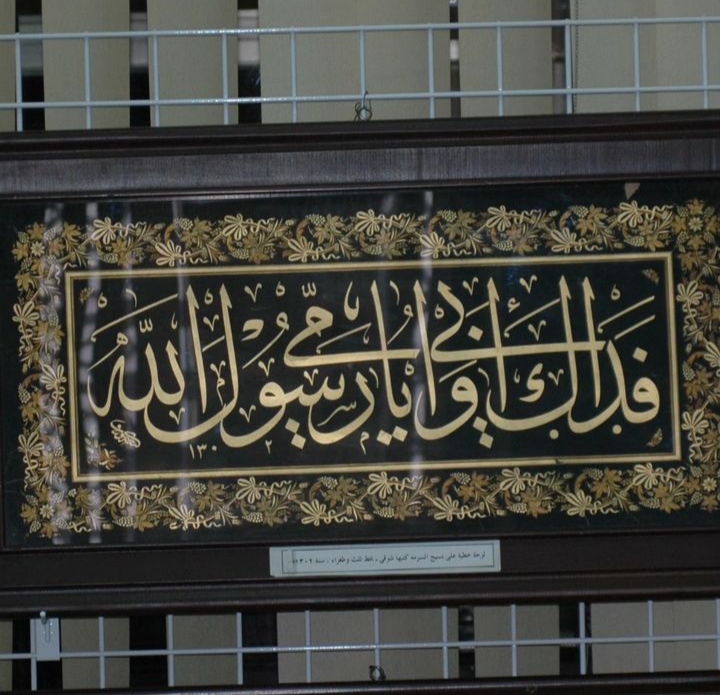 فداك ابي وامي يا رسول الله
١٣٠٢
لوحة خطية على نسيج السرمه كتبها شوقي ـ بخط ثلث وطغراء ، سنة ١٣٠٢هـ